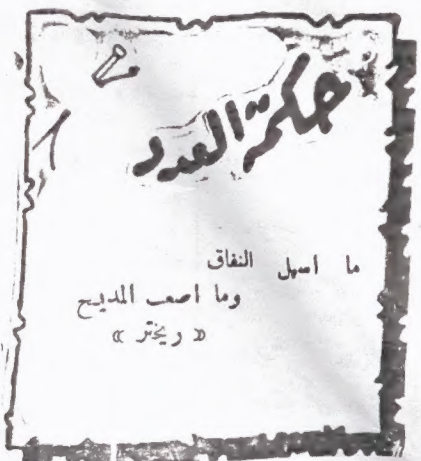 حكمة العدد
ما اسهل النفاق
وما اصعب المديح
« ريختر »